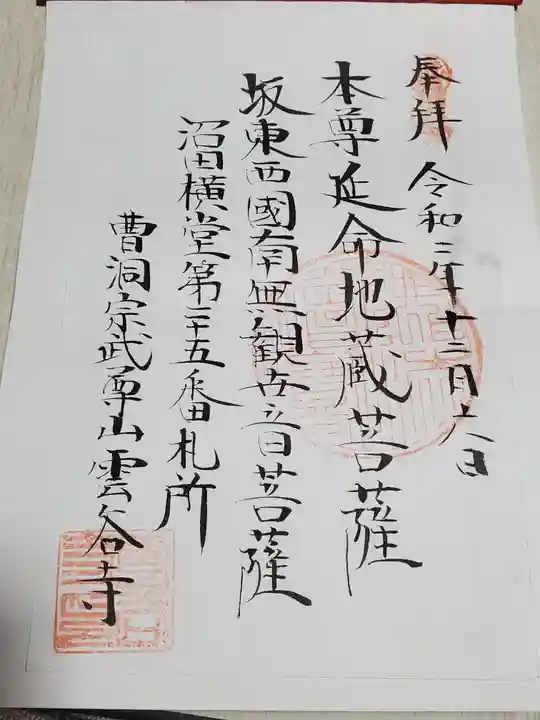 奉拝 令和二年十二月十八日
本尊延命地蔵菩薩
坂東西國南無観世音菩薩
沼田横堂第二十五番札所
曹洞宗武尊山雲谷寺